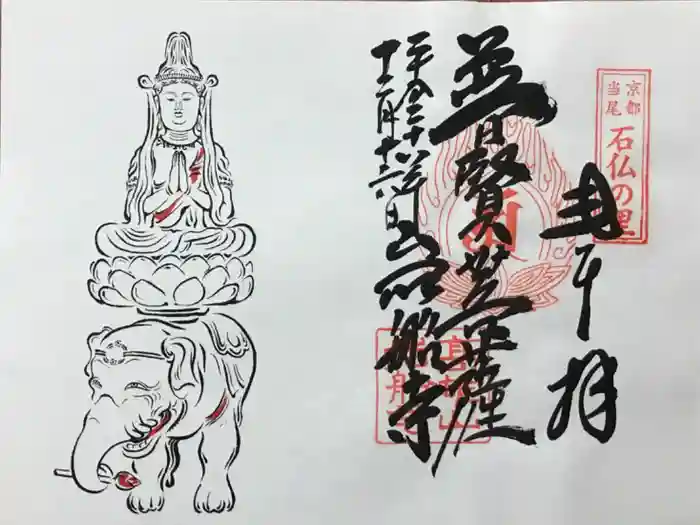 京都
当尾
石仏の里
奉拝
普賢菩薩
平成二十八年
十二月十六日
岩船寺